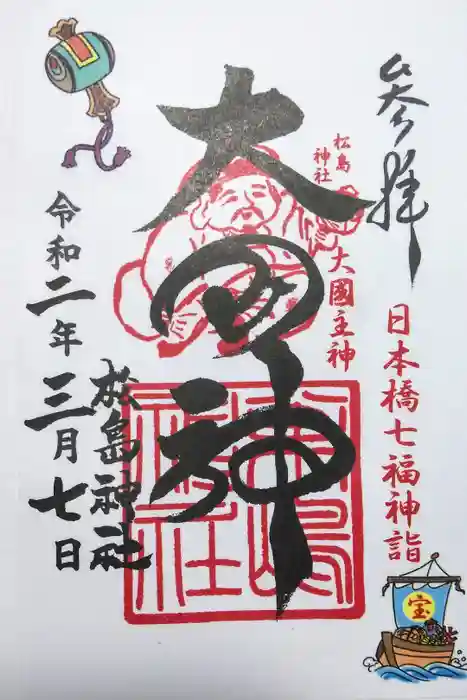 参拝
日本橋七福神詣
宝
松島
神社
大國主神
大国神
松島神社
松島神社
令和二年三月七日